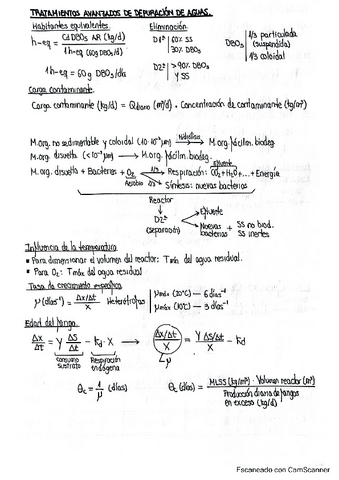 TRATAMIENTOS AVANZADOS DE DEPURACIÓN DE AGUAS.
Habitantes equivalentes:
h-eq = Cd DBO5 AR (kg/d) / 1h-eq (60g DBO5/d)
1h-eq = 60g DBO5/día
Eliminación
D1º | 60% SS
30% DBO5
D2º | >90% DBO5
y SS
DBO5 | 1/3 particulada
(suspendida)
1/3 coloidal
Carga contaminante
Carga contaminante (kg/d) = Qdiario (m³/d) · Concentración de contaminante (kg/m³)
M.org. no sedimentable y coloidal Hidrólisis → M.org. fácilm. biodeg.
M.org. disuelta → M.org. fácilm. biodeg.
M.org. disuelta + Bacterias + O2 1/3 → Respiración: CO2 + H2O + ... + Energía
Efluente
Aerobio 2/3 → Síntesis: nuevas bacterias
Reactor
D2º
(separación)
→ Efluente
→ Nuevas bacterias + SS no biod.
SS inertes
Influencia de la temperatura
• Para dimensionar el volumen del reactor: Tmín del agua residual.
• Para O2: Tmáx del agua residual
Tasa de crecimiento específica
μ (días⁻¹) = Δx/Δt / X Heterótrofas | μmáx (20ºC) – 6 días⁻¹
μmáx (10ºC) – 3 días⁻¹
Edad del fango
Δx/Δt = Y ΔS/Δt – kd · X → Δx/Δt / X = Y ΔS/Δt / X – kd
consumo sustrato
Respiración endógena
μ
θc = 1/μ (días)
θc (días) = MLSS (kg/m³) · Volumen reactor (m³) / Producción diaria de fangos en exceso (kg/d)
Escaneado con CamScanner